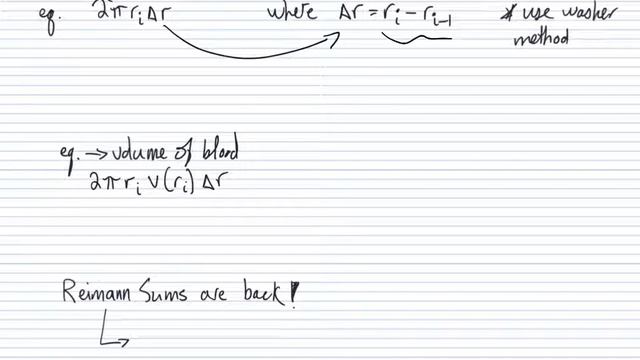 eq. 2πrᵢΔr where Δr = rᵢ - rᵢ₋₁ * use washer
method
eq. → volume of blood
2πrᵢ v(rᵢ) Δr
Reimann Sums are back!